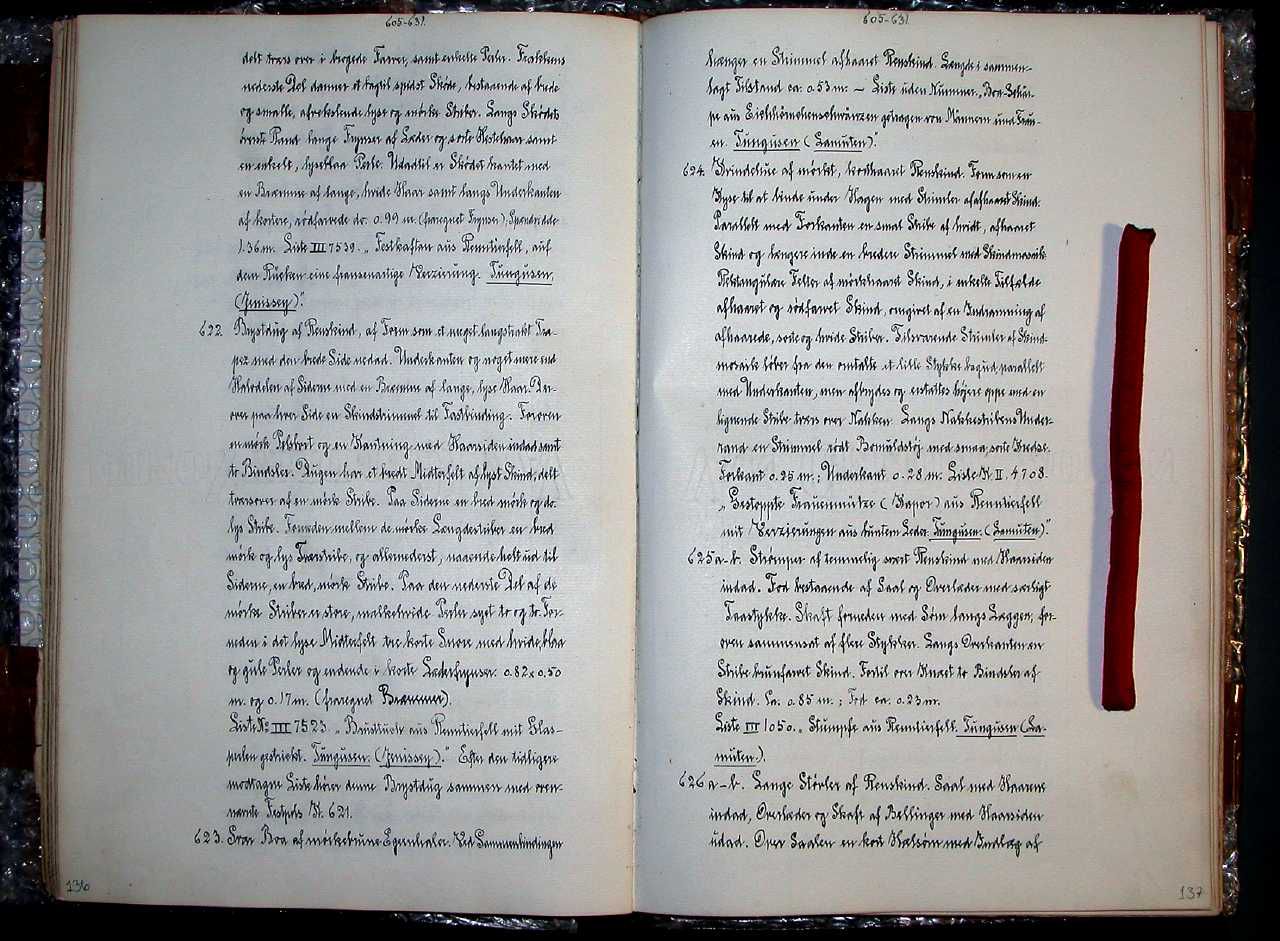 605-631.
delt tværs over i brogede Farver, samt enkelte Perler. Frakkens
nederste Del danner et bagtil spidst Sköde, bestaaende af brede
og smalle, afvekslende lyse og mörke Striber. Langs Sködets
Rand lange Frynser af Læder og sorte Hestehaar samt
en enkelt, lyseblaa Perle. Udadtil er Sködet kantet med
en Bræmme af lange, hvide Haar samt langs Underkanten
af kortere, rödfarvede do. 0.99 m. (fraregnet Frynser), Spændvidde
1.36 m. Liste III 7539. „Festkaftan aus Renntierfell, auf
dem Rücken eine fransenartige Verzierung. Tungusen,
(Jenissey)."
622. Brystdug af Renskind, af Form som et meget langstrakt Tra-
pez med den brede Side nedad. Underkanten og noget mere end
Halvdelen af Siderne med en Bræmme af lange, lyse Haar. Der-
over paa hver Side en Skindstrimmel til Fastbinding. Foroven
en mörk Pelsbort og en Kantning med Haarsiden indad samt
to Bindsler. Dugen har et bredt Midterfelt af lyst Skind, delt
tværsover af en mörk Stribe. Paa Siderne en bred mörk og do.
lys Stribe. Forneden mellem de mörke Længdestriber en bred
mörk og lys Tværstribe, og allernederst, naaende helt ud til
Siderne, en bred, mörk Stribe. Paa den nederste Del af de
mörke Striber er store, mælkehvide Perler syet to og to. For-
neden i det lyse Midterfelt tre korte Snore med hvide, blaa
og gule Perler og endende i korte Læderfrynser. 0.82 x 0.50
m. og 0.17 m. (fraregnet Bræmmer).
Liste No III 7523. „Brusttuch aus Renntierfell mit Glas-
perlen gestickt. Tungusen. (Jenissey)." Efter den tidligere
modtagne Liste hörer denne Brystdug sammen med oven-
nævnte Festpels N. 621.
623. Svær Boa af mörkebrune Egernhaler. Ved Sammenbindingen
136
605-631
hænger en Strimmel afhaaret Renskind. Længde i sammen-
lagt Tilstand ca. 0.53 m. – Liste uden Nummer. „Boa-Schär-
pe aus Eichhörnchenschwänzen getragen von Männern und Frau-
en. Tungusen (Lamuten)."
624. Kvindehue af mörkt, korthaaret Renskind. Form som en
Kyse til at binde under Hagen med Strimler af afhaaret Skind.
Parallelt med Forkanten en smal Stribe af hvidt, afhaaret
Skind og længere inde en bredere Strimmel med Skindmosaik.
Rektangulære Felter af mörkhaaret Skind, i enkelte Tilfælde
afhaaret og rödfarvet Skind, omgivet af en Indramning af
afhaarede, sorte og hvide Striber. Tilsvarende Strimler af Skind-
mosaik löber fra den omtalte et lille Stykke bagud, parallelt
med Underkanten, men afbrydes og erstattes höjere oppe med en
lignende Stribe tværs over Nakken. Langs Nakkestribens Under-
rand en Strimmel rödt Bomuldstöj med smaa, sorte Kvadse.
Forkant 0.25 m.; Underkant 0.28 m. Liste N. II. 4708.
„Gestoppte Frauenmütze (Kapor) aus Renntierfell
mit Verzierungen aus buntem Leder. Tungusen. (Lamuten)."
625 a-b. Strömper af temmelig svært Renskind med Haarsiden
indad. Fod bestaaende af Saal og Overlæder med særligt
Taastykke. Skaft forneden med Söm langs Læggen, for-
oven sammensat af flere Stykker. Langs Overkanten en
Stribe brunfarvet Skind. Fortil over Knæet to Bindsler af
Skind. L. 0.85 m.; Fod ca. 0.23 m.
Liste III 1050. „Strümpfe aus Renntierfell. Tungusen (La-
muten.)
626 a-b. Lange Stövler af Renskind. Saal med Haarene
indad, Overlæder og Skaft af Bellinger med Haarsiden
udad. Over Saalen en kort Hælsöm med Indlæg af
137